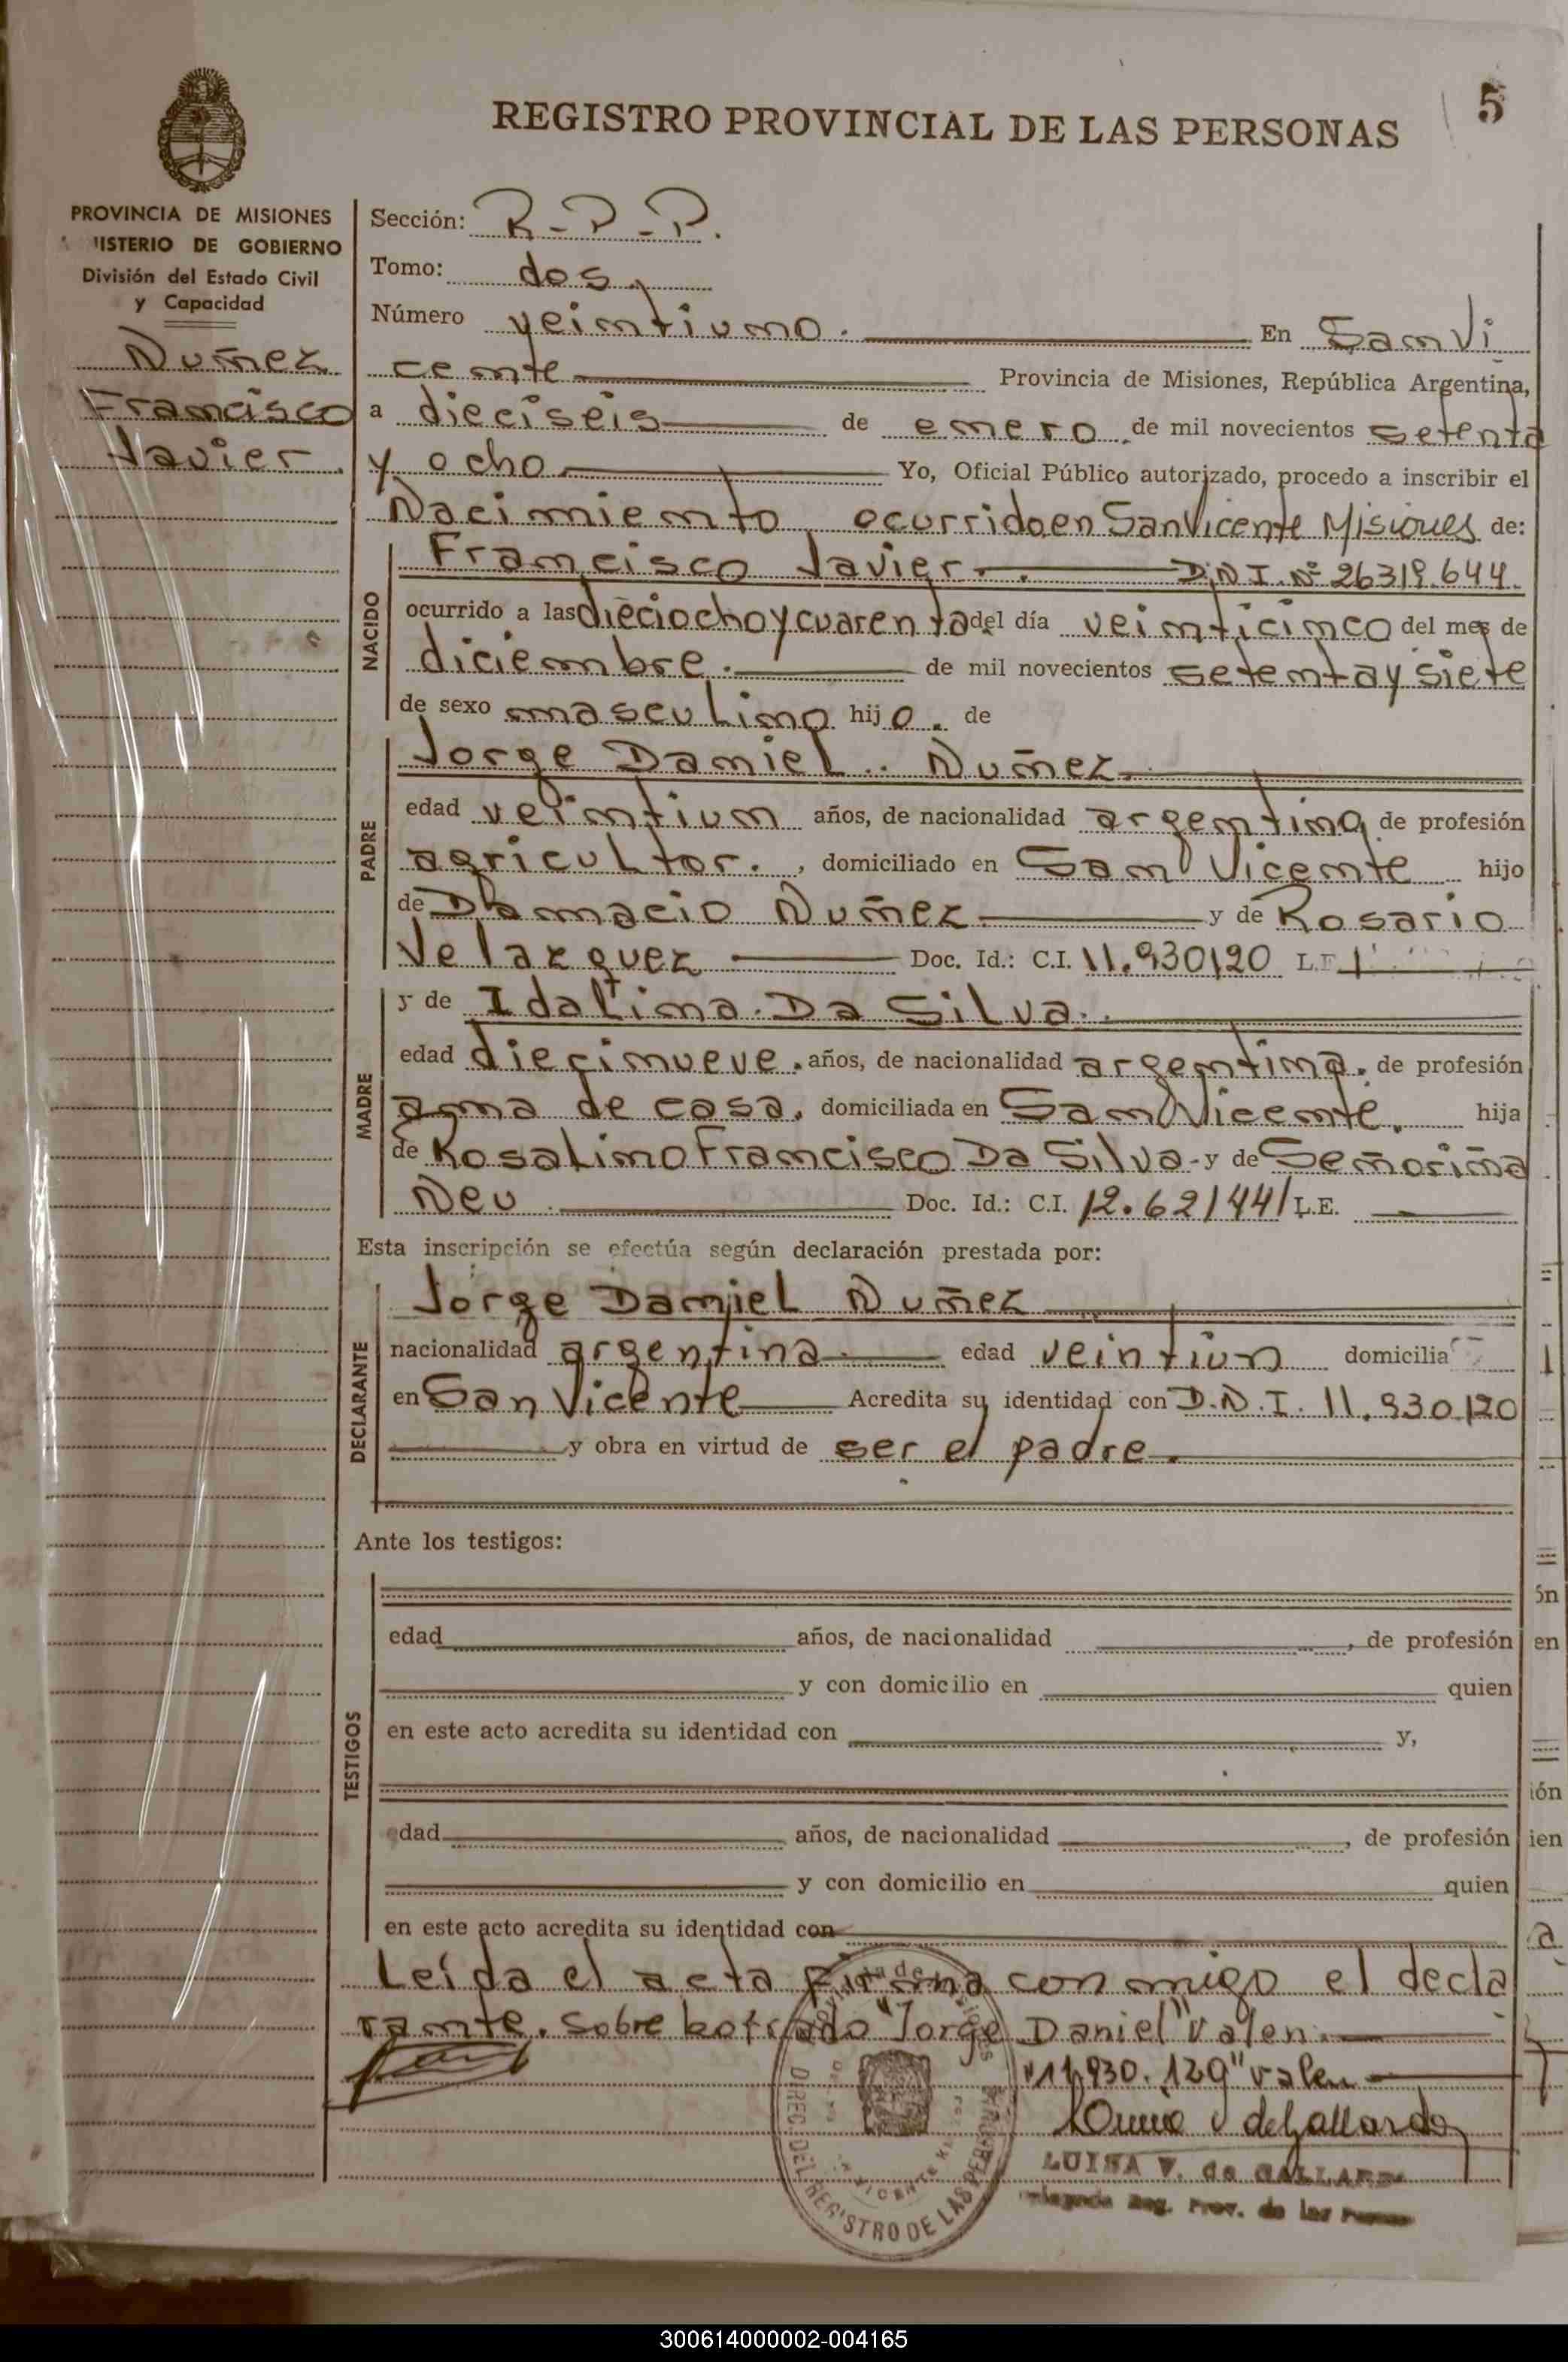 5
REGISTRO PROVINCIAL DE LAS PERSONAS
PROVINCIA DE MISIONES
ISTERIO DE GOBIERNO
División del Estado Civil
y Capacidad
Nuñez
Francisco
Javier
Sección: R-P-P.
Tomo: dos
Número veintiuno. En San Vi
cente Provincia de Misiones, República Argentina,
a dieciseis de enero de mil novecientos setenta
y ocho Yo, Oficial Público autorizado, procedo a inscribir el
Nacimiento ocurrido en San Vicente Misiones de:
NACIDO
Francisco Javier. D.N.I. Nº 26319.644.
ocurrido a las dieciocho y cuarenta del día veinticinco del mes de
diciembre. de mil novecientos setenta y siete
de sexo masculino hijo. de
PADRE
Jorge Daniel Nuñez
edad veintiun años, de nacionalidad argentina de profesión
agricultor., domiciliado en San Vicente hijo
de Damacio Nuñez y de Rosario
Velazquez Doc. Id.: C.I. 11.930120 L.E
MADRE
y de Idalina Da Silva.
edad diecinueve. años, de nacionalidad argentina. de profesión
ama de casa. domiciliada en San Vicente. hija
de Rosalino Francisco Da Silva - y de Señoriña
Neu Doc. Id.: C.I. 12.621441 L.E.
Esta inscripción se efectúa según declaración prestada por:
DECLARANTE
Jorge Daniel Nuñez
nacionalidad argentina edad veintiun domicilia
en San Vicente Acredita su identidad con D.N.I. 11.930.120
y obra en virtud de ser el padre.
Ante los testigos:
TESTIGOS
edad años, de nacionalidad , de profesión
y con domicilio en quien
en este acto acredita su identidad con y,
edad años, de nacionalidad , de profesión
y con domicilio en quien
en este acto acredita su identidad con
Leída el acta firma conmigo el decla
rante. sobre borrado "Jorge Daniel" valen.
"11.930.120" valen
LUISA V. de GALLARDO
Reg. Prov. de las Personas
DIREC. DEL REGISTRO DE LAS PERSONAS
300614000002-004165